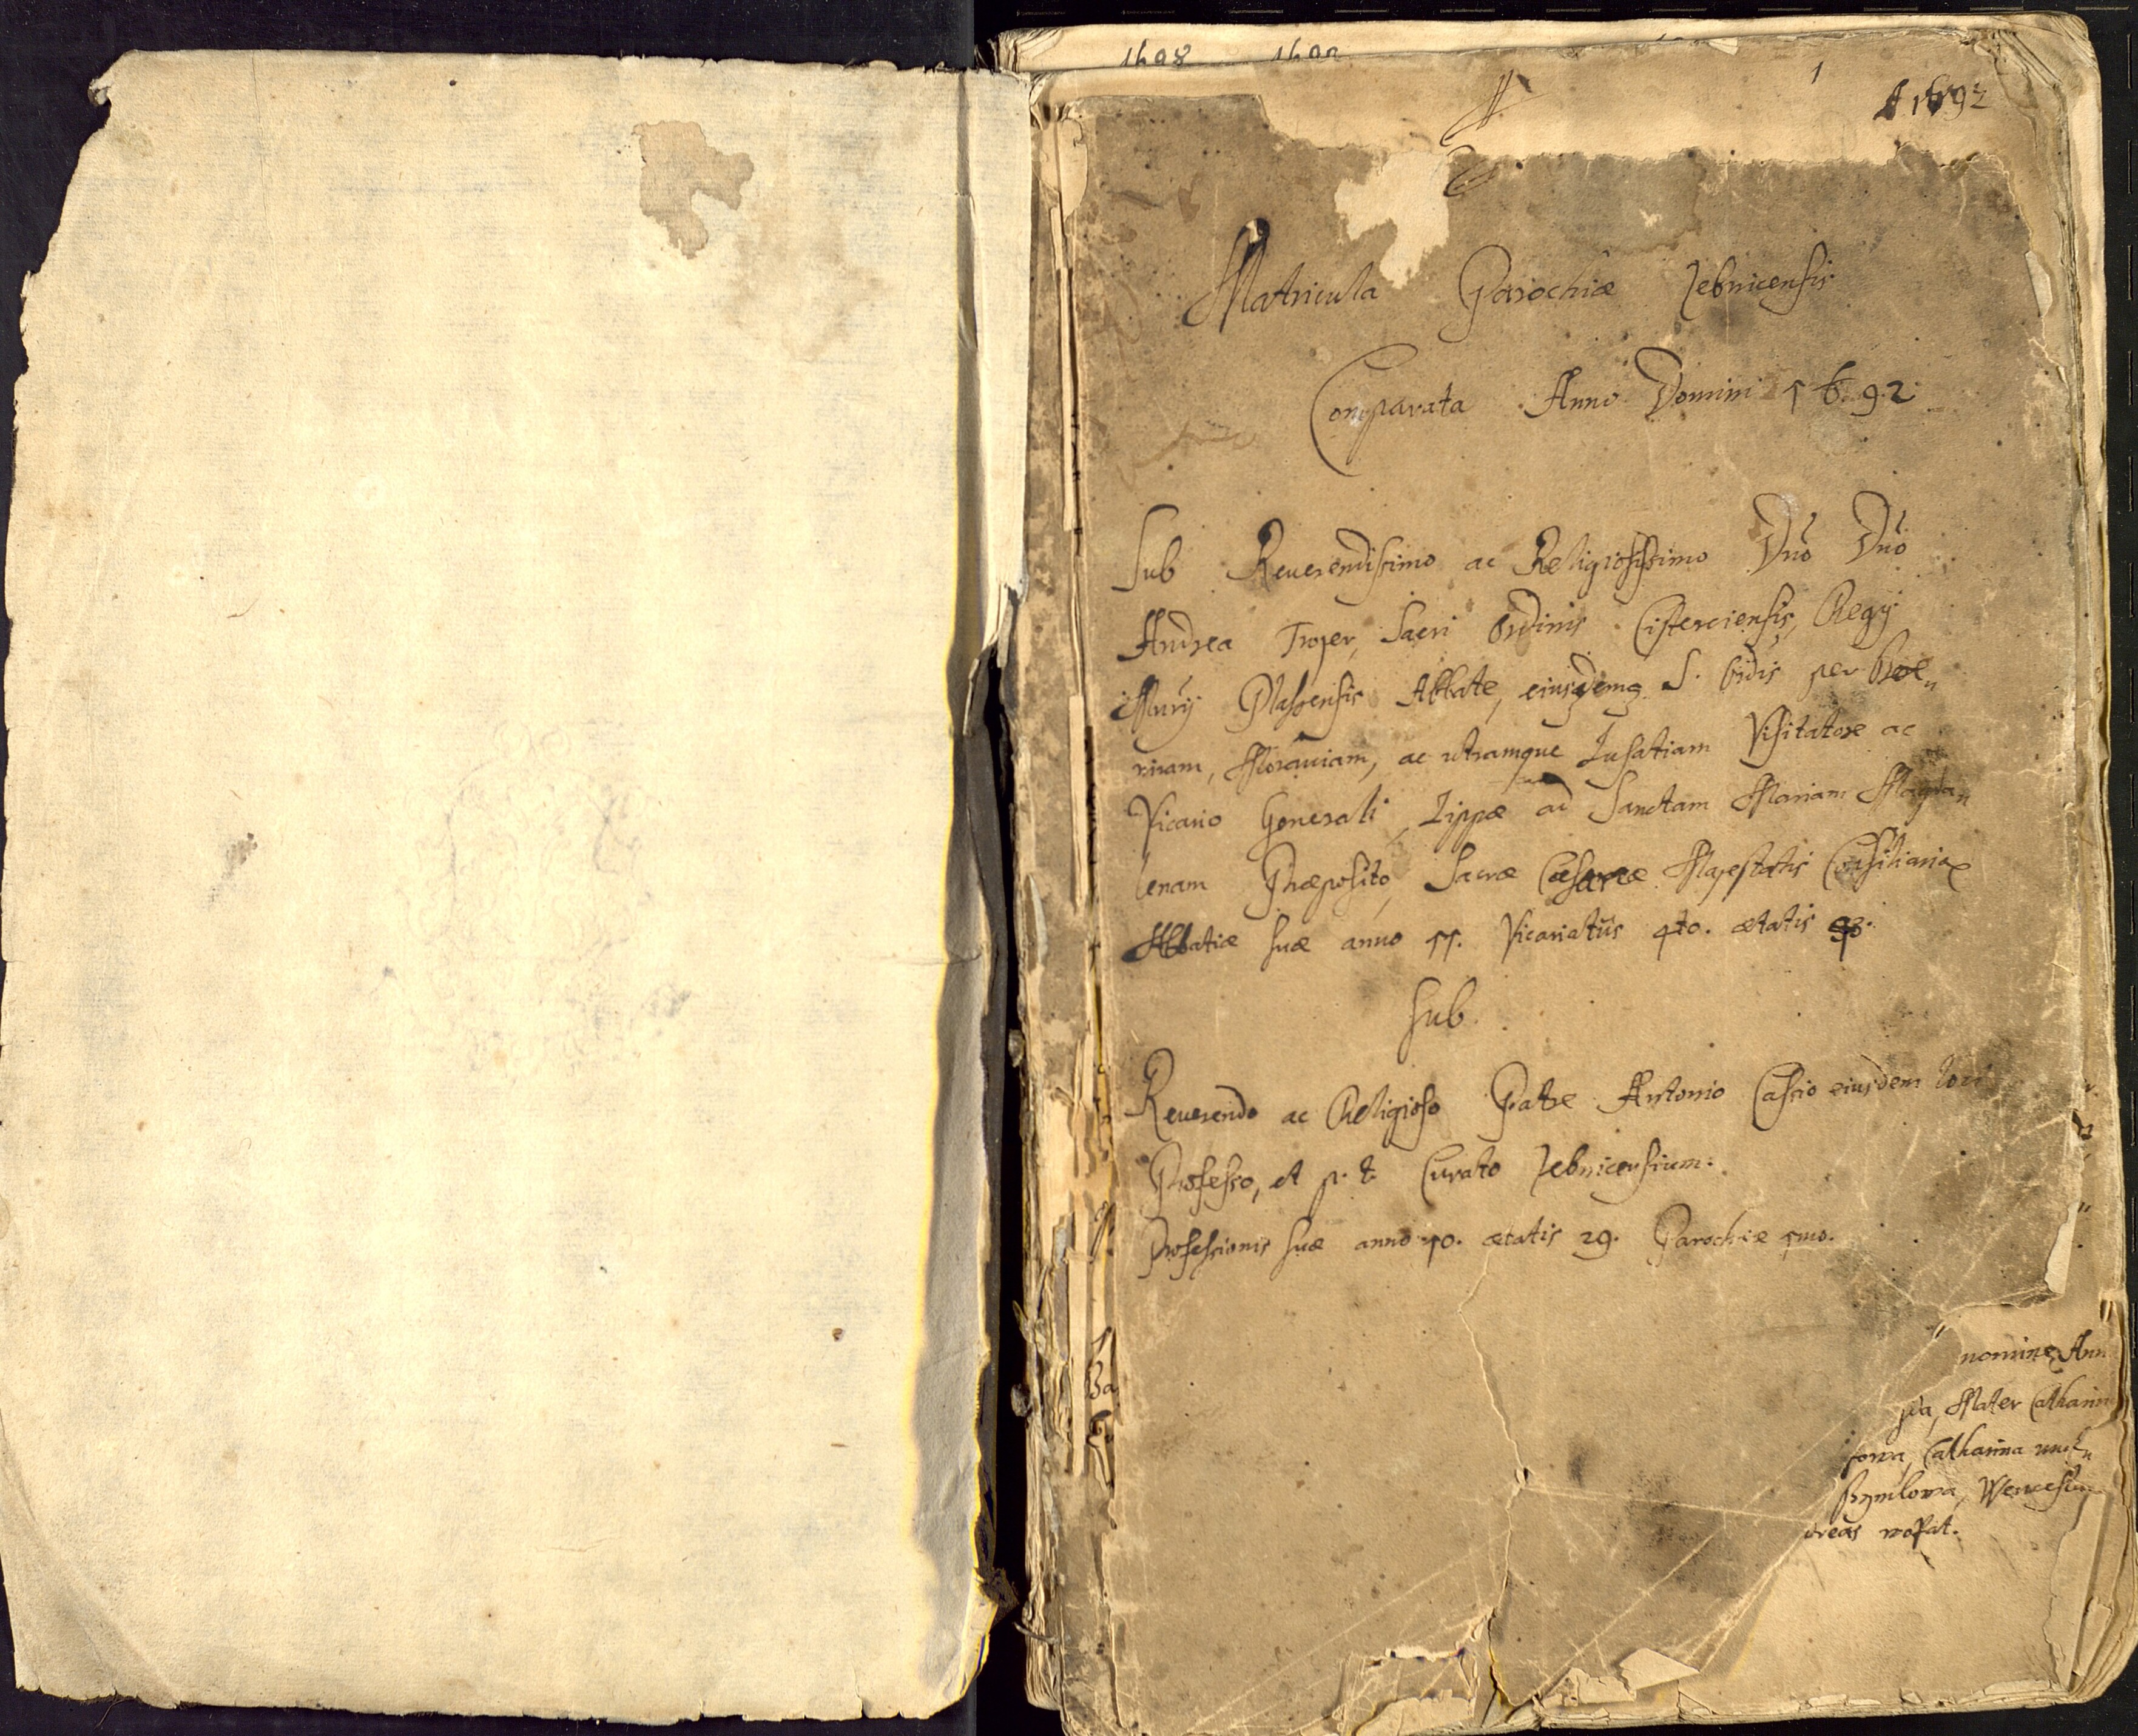 1698 1692
1
A 1692
Matricula Parochiæ Jebnicensis
Comparata Anno Domini 1692
Sub Reuerendissimo ac Religiosissimo Dnõ Dnõ
Andrea Troyer, Sacri Ordinis Cisterciensis, Regij
Mũrij Plassensis Abbate, eiusdemq S. Ordis per Boe„
miam, Morauiam, ac utramque Lusatiam Visitatore ac
Vicario Generali, Zippæ ad Sanctam Mariam Magda„
lenam Præposito, Sacræ Cæsareæ Majestatis Consiliario
Abbatiæ suæ anno 11. Vicariatûs 4to. ætatis
Sub.
Reuerendo ac Religioso Patre Antonio Cascio eiusdem loci
Professo, et p. t. Curato Jebnicensium.
Professionis suæ anno 10. ætatis 29. Parochiæ 1mo.
nomine Ann
Mater Catharin
Catharina
Wencesl
Ba